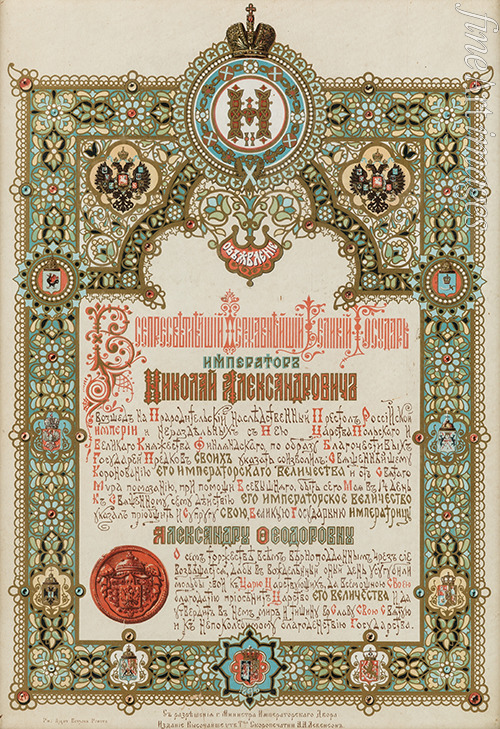 Н
II
ОБЪЯВЛЕНІЕ
ВСЕПРЕСВѢТЛѢЙШІЙ ДЕРЖАВНѢЙШІЙ ВЕЛИКІЙ ГОСУДАРЬ
ИМПЕРАТОРЪ
НИКОЛАЙ АЛЕКСАНДРОВИЧЪ
ВЗОШЕДЪ НА ПРАРОДИТЕЛЬСКІЙ НАСЛѢДСТВЕННЫЙ ПРЕСТОЛЪ РОССІЙСКОЙ
ИМПЕРІИ И НЕРАЗДѢЛЬНЫХЪ СЪ НЕЮ ЦАРСТВА ПОЛЬСКАГО И
ВЕЛИКАГО КНЯЖЕСТВА ФИНЛЯНДСКАГО, ПО ОБРАЗУ БЛАГОЧЕСТИВЫХЪ
ГОСУДАРЕЙ ПРЕДКОВЪ СВОИХЪ УКАЗАТЬ СОИЗВОЛИЛЪ: СВЯЩЕННѢЙШЕМУ
КОРОНОВАНІЮ ЕГО ИМПЕРАТОРСКАГО ВЕЛИЧЕСТВА И ОТЪ СВЯТАГО
МУРА ПОМАЗАНІЮ, ПРИ ПОМОЩИ ВСЕВЫШНЯГО, БЫТЬ СЕГО МАЯ ВЪ 14 ДЕНЬ
КЪ СВЯЩЕННОМУ СЕМУ ДѢЙСТВІЮ ЕГО ИМПЕРАТОРСКОЕ ВЕЛИЧЕСТВО
УКАЗАЛЪ ПРІОБЩИТЬ И СУПРУГУ СВОЮ, ВЕЛИКУЮ ГОСУДАРЫНЮ ИМПЕРАТРИЦУ
АЛЕКСАНДРУ ѲЕОДОРОВНУ
О СЕМЪ ТОРЖЕСТВѢ ВСѢМЪ ВѢРНОПОДДАННЫМЪ ЧРЕЗЪ СІЕ
ВОЗВѢЩАЕТСЯ, ДАБЫ ВЪ ВОЖДЕЛѢННЫЙ ОНЫЙ ДЕНЬ УСУГУБИЛИ
МОЛЬБЫ СВОИ КЪ ЦАРЮ ЦАРСТВУЮЩИХЪ, ДА ВСЕМОЩНОЮ СВОЕЮ
БЛАГОДАТІЮ ПРІОСѢНИТЪ ЦАРСТВО ЕГО ВЕЛИЧЕСТВА И ДА
УТВЕРДИТЪ ВЪ НЕМЪ МИРЪ И ТИШИНУ ВЪ СЛАВУ СВОЮ СВЯТУЮ
И КЪ НЕПОКОЛЕБИМОМУ БЛАГОДЕНСТВІЮ ГОСУДАРСТВА.
Съ разрѣшенія г. Министра Императорскаго Двора
Изданіе Высочайше утв. Т-ва Скоропечатни А.А. Левенсонъ.
fineartimages